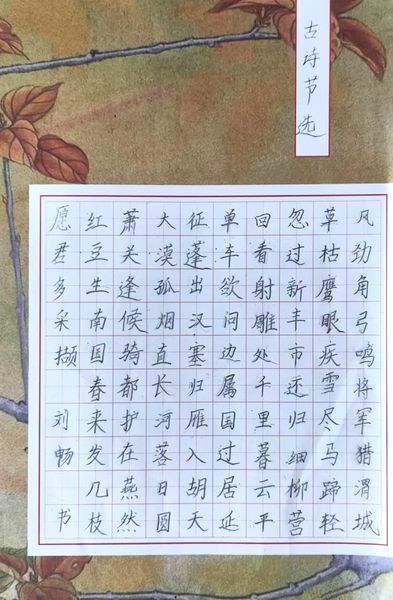 古诗节选
风劲角弓鸣将军猎渭城
草枯鹰眼疾雪尽马蹄轻
忽过新丰市还归细柳营
回看射雕处千里暮云平
单车欲问边属国过居延
征蓬出汉塞归雁入胡天
大漠孤烟直长河落日圆
萧关逢候骑都护在燕然
红豆生南国春来发几枝
愿君多采撷 刘畅 书